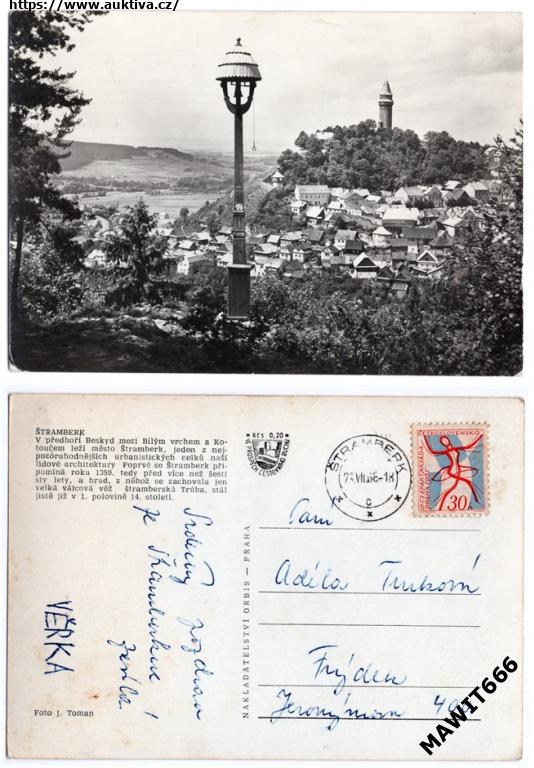 https://www.auktiva.cz/
ŠTRAMBERK
V předhoří Beskyd mezi Bílým vrchem a Ko-
toučem leží město Štramberk, jeden z nej-
pozoruhodnějších urbanistických celků naší
lidové architektury Poprvé se Štramberk při-
pomíná roku 1359, tedy před více než šesti
sty lety, a hrad, z něhož se zachovala jen
velká válcová věž štramberská Trúba, stál
jistě již v 1. polovině 14. století.
Kčs 0,20
ŠTRAMBERK
VII.66-18
C
ČESKOSLOVENSKO
30
Srdečný pozdrav
ze Štramberka
VĚRKA
Foto J. Toman
NAKLADATELSTVÍ ORBIS — PRAHA
Paní
Adéla
Frýdek
MAWIT666